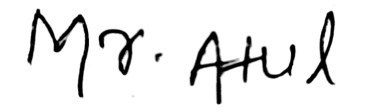 Mr. Atul